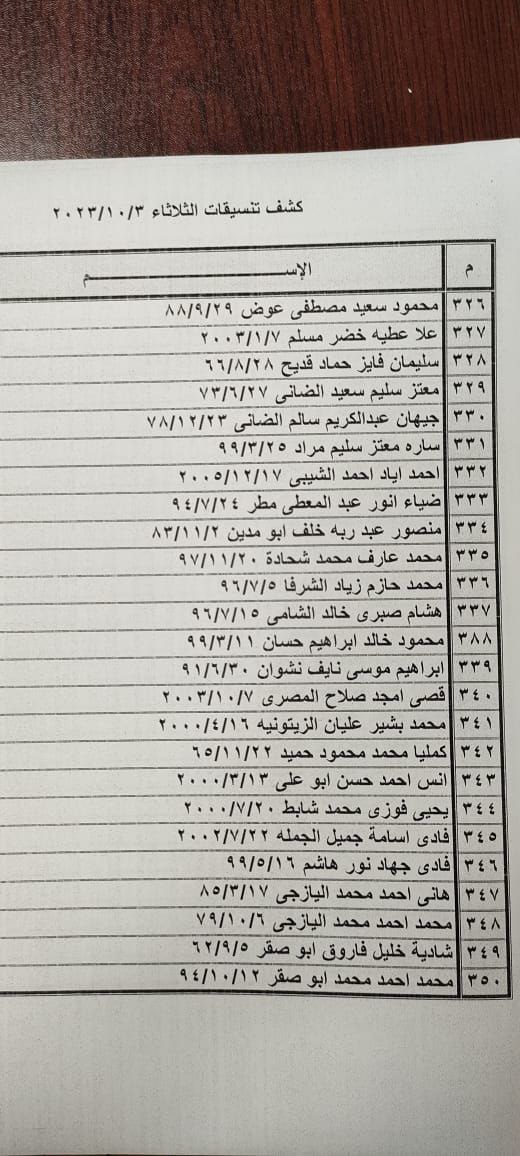 كشف تنسيقات الثلاثاء ٢٠٢٣/١٠/٣
م الإســـــــــــم
٣٢٦ محمود سعيد مصطفى عوض ٨٨/٩/٢٩
٣٢٧ علا عطيه خضر مسلم ٢٠٠٣/١/٧
٣٢٨ سليمان فايز حماد قديح ٦٦/٨/٢٨
٣٢٩ معتز سليم سعيد الضانى ٧٣/٦/٢٧
٣٣٠ جيهان عبدالكريم سالم الضانى ٧٨/١٢/٢٣
٣٣١ ساره معتز سليم مراد ٩٩/٣/٢٥
٣٣٢ احمد اياد احمد الشيبى ٢٠٠٥/١٢/١٧
٣٣٣ ضياء انور عبد المعطى مطر ٩٤/٧/٢٤
٣٣٤ منصور عبد ربه خلف ابو مدين ٨٣/١١/٢
٣٣٥ محمد عارف محمد شحادة ٩٧/١١/٢٠
٣٣٦ محمد حازم زياد الشرفا ٩٦/٧/٥
٣٣٧ هشام صبرى خالد الشامى ٩٦/٧/١٥
٣٨٨ محمود خالد ابراهيم حسان ٩٩/٣/١١
٣٣٩ ابراهيم موسى نايف نشوان ٩١/٦/٣٠
٣٤٠ قصى امجد صلاح المصرى ٢٠٠٣/١٠/٧
٣٤١ محمد بشير عليان الزيتونيه ٢٠٠٠/٤/١٦
٣٤٢ كمليا محمد محمود حميد ٦٥/١١/٢٢
٣٤٣ انس احمد حسن ابو على ٢٠٠٠/٣/١٣
٣٤٤ يحيى فوزى محمد شابط ٢٠٠٠/٧/٢٠
٣٤٥ فادى اسامة جميل الجمله ٢٠٠٢/٧/٢٢
٣٤٦ فادى جهاد نور هاشم ٩٩/٥/١٦
٣٤٧ هانى احمد محمد اليازجى ٨٥/٣/١٧
٣٤٨ محمد احمد محمد اليازجى ٧٩/١٠/٦
٣٤٩ شادية خليل فاروق ابو صقر ٦٢/٩/٥
٣٥٠ محمد احمد محمد ابو صقر ٩٤/١٠/١٢